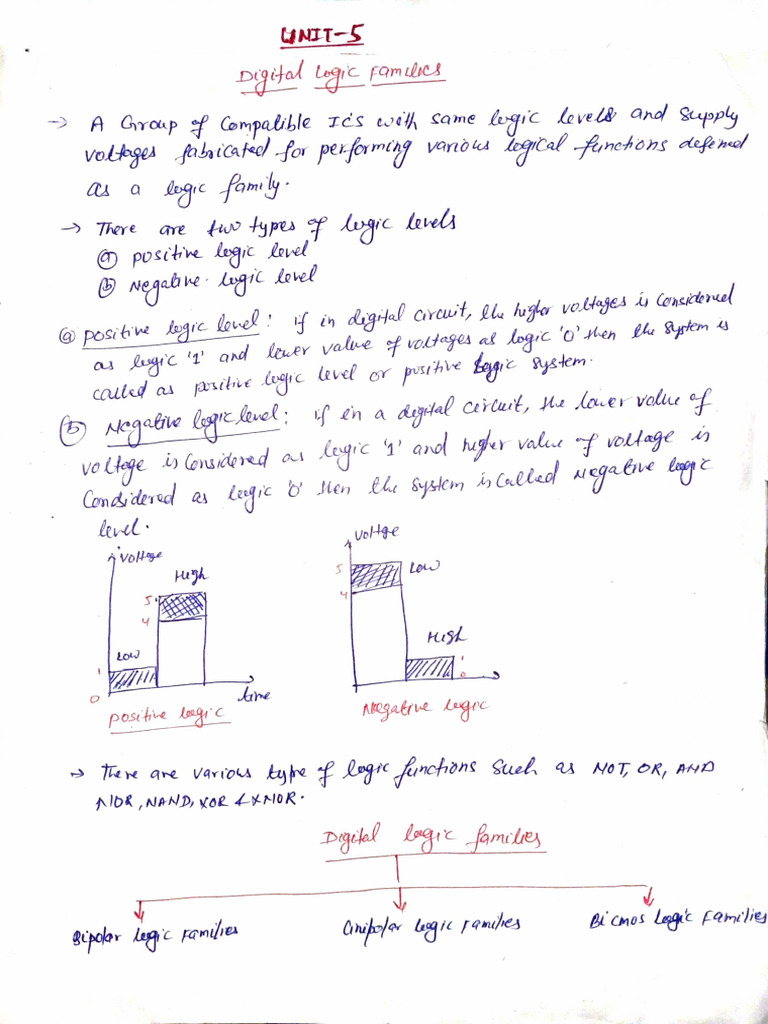 UNIT-5
Digital Logic Families
→ A Group of Compatible IC's with same logic levels and supply
voltages fabricated for performing various logical functions defined
as a logic family.
→ There are two types of logic levels
ⓐ positive logic level
ⓑ Negative logic level
ⓐ positive logic level : if in digital circuit, the higher voltages is considered
as logic '1' and lower value of voltages as logic '0' then the system is
called as positive logic level or positive logic system.
ⓑ Negative logic level : if in a digital circuit, the lower value of
voltage is considered as logic '1' and higher value of voltage is
Condsidered as logic '0' then the system is called Negative logic
level.
voltage
High
5
4
Low
1
0
time
positive logic
voltge
5
Low
4
High
1
0
Negative logic
→ There are various type of logic functions such as NOT, OR, AND
NOR, NAND, XOR & XNOR.
Digital logic families
Bipolar Logic Families
Unipolar Logic Families
Bicmos Logic Families